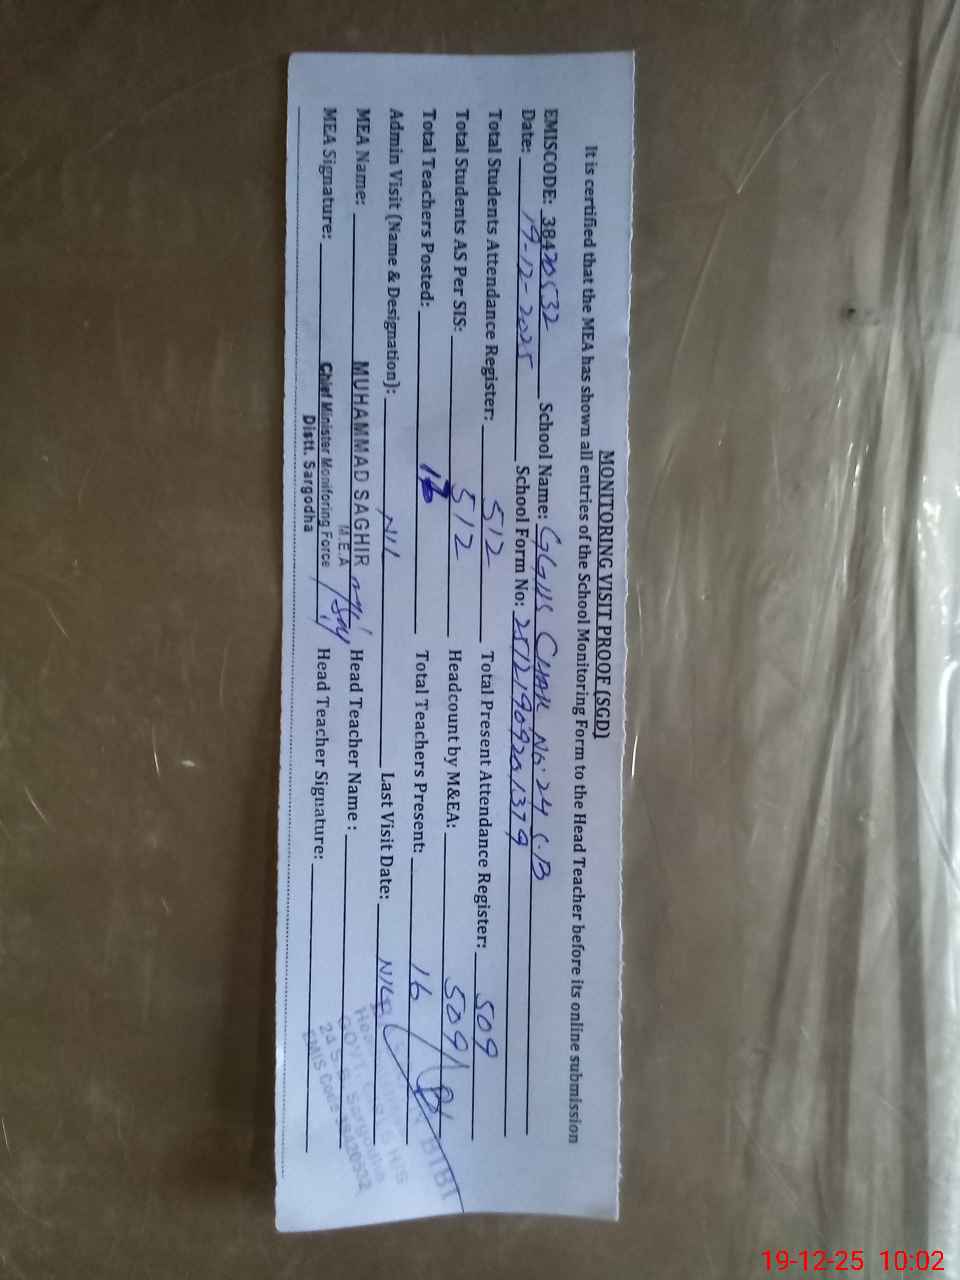 MONITORING VISIT PROOF (SGD)
It is certified that the MEA has shown all entries of the School Monitoring Form to the Head Teacher before its online submission
EMISCODE: 38420532 School Name: GGHS CHAK No. 24 S.B
Date: 19-12-2025 School Form No:
Total Students Attendance Register: 512 Total Present Attendance Register: 509
Total Students AS Per SIS: 512 Headcount by M&EA: 509
Total Teachers Posted: Total Teachers Present: 16
Admin Visit (Name & Designation): Nil Last Visit Date:
MEA Name: MUHAMMAD SAGHIR Head Teacher Name:
M.E.A
MEA Signature: Chief Minister Monitoring Force Head Teacher Signature:
Distt. Sargodha
BIBI
GOVT. GIRLS H/S
24 S.B. Sargodha
EMIS Code 38420532
19-12-25 10:02